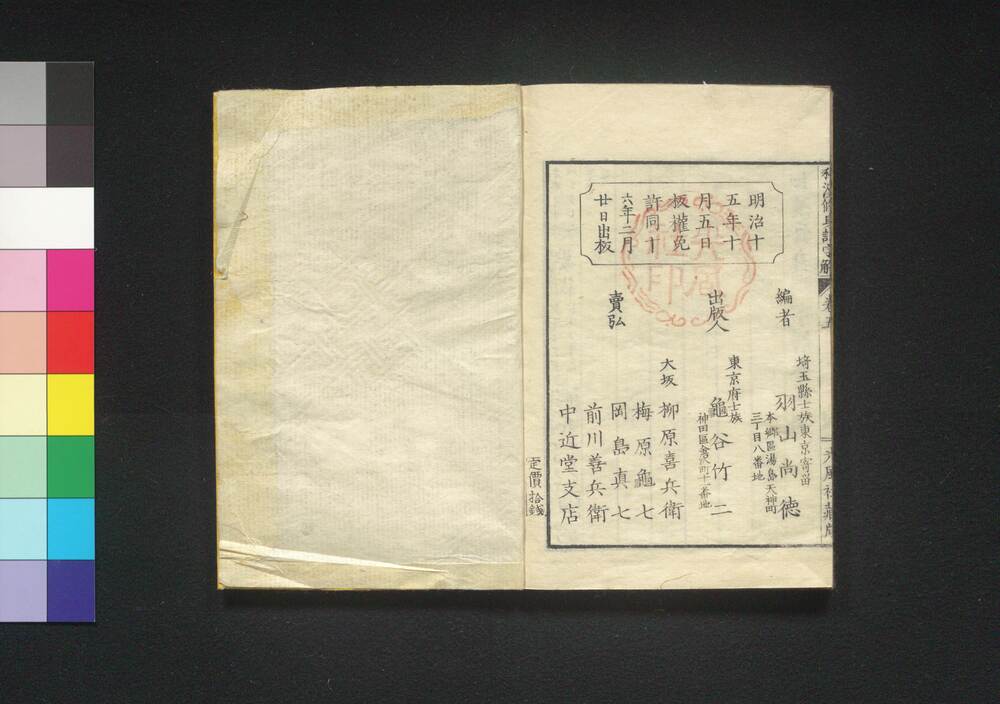 和漢修身訓字解
卷五
光風社藏版
明治十
五年十
月五日
板權免
許同十
六年二月
廿日出板
編者
埼玉縣士族東京寄留
本鄉區湯島天神町
三丁目八番地
羽山尚德
出版人
東京府士族
龜谷竹二
賣弘
大坂
柳原喜兵衛
梅原龜七
岡島真七
前川善兵衛
中近堂支店
定價拾錢